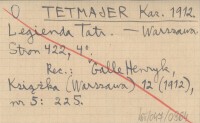 O TETMAJER Kaz. 1912.
Legienda Tatr. — Warszawa
Stron 422, 4°.
Rec.: Galle Henryk,
Książka (Warszawa) 12 (1912),
nr 5: 225.